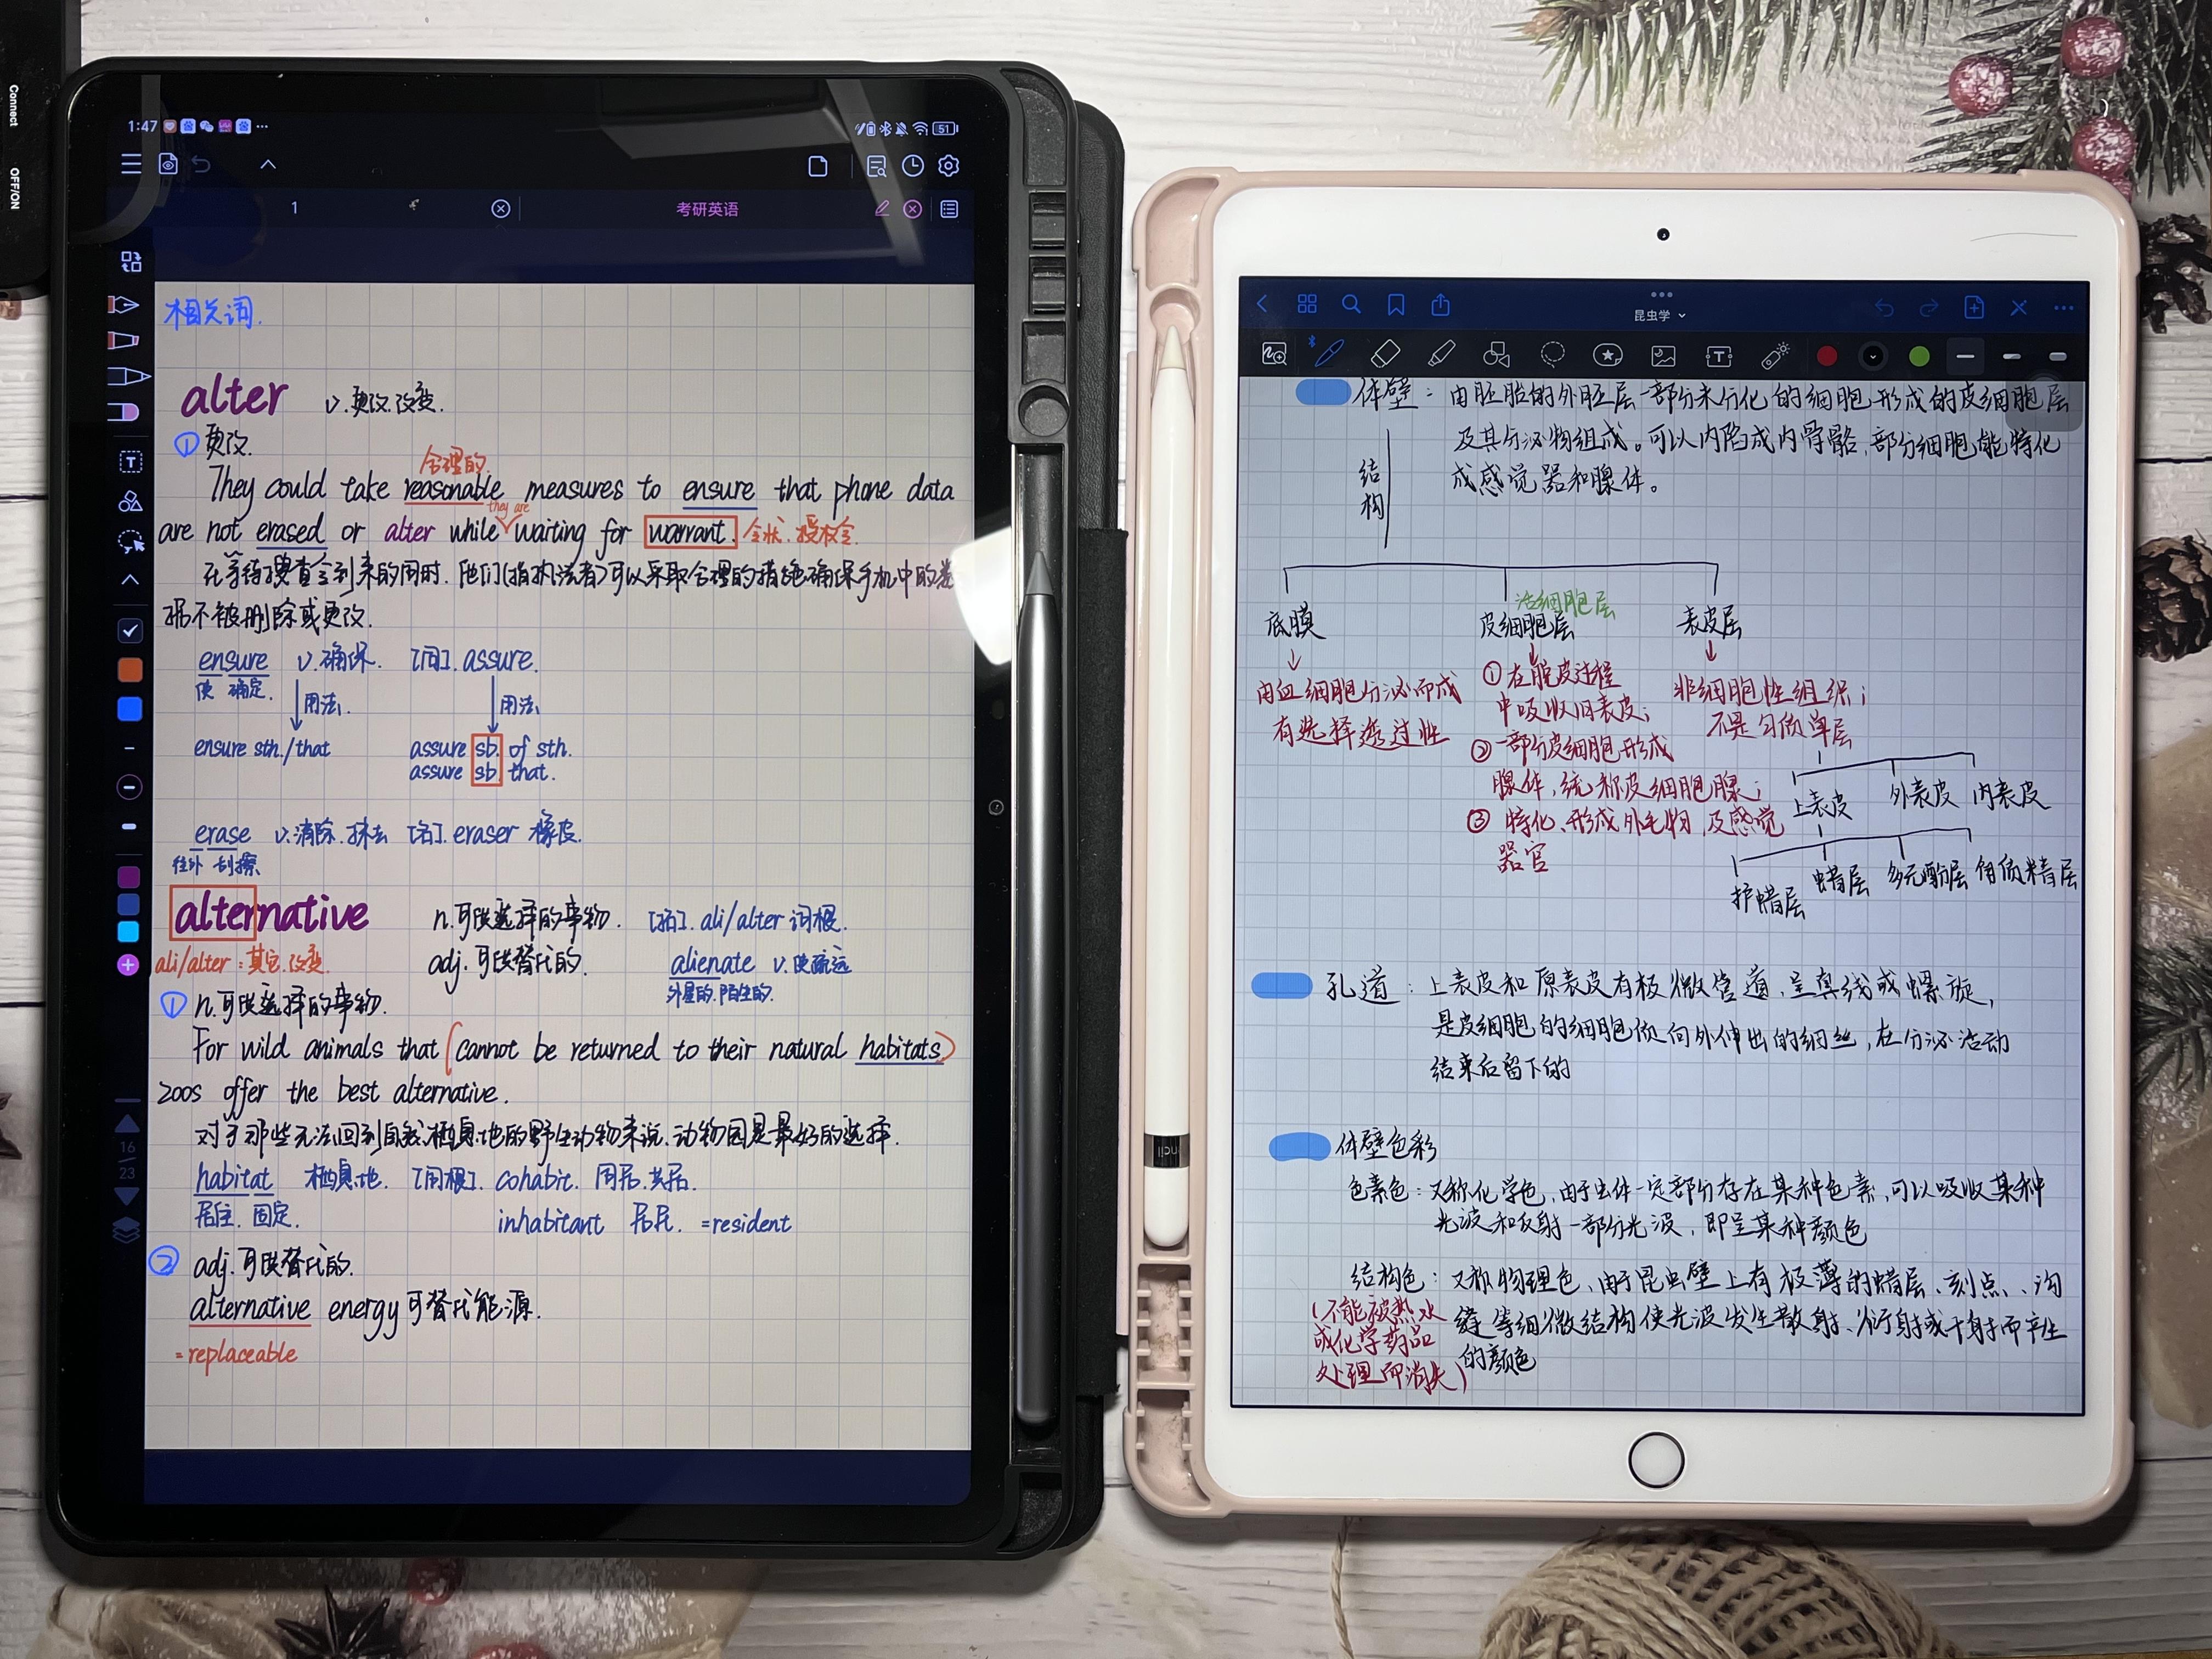 Connect
OFF/ON
1:47
51
1
考研英语
相关词.
alter v.更改.改变.
① 更改.
合理的.
They could take reasonable measures to ensure that phone data
they are
are not erased or alter while waiting for warrant. 令状.授权令.
在等待搜查令到来的同时.他们(指执法者)可以采取合理的措施确保手机中的数
据不被删除或更改.
ensure v.确保. [同]. assure.
使 确定.
用法. 用法
ensure sth./that assure sb. of sth.
assure sb. that.
erase v.消除.抹去 [拓]. eraser 橡皮.
往外 刮擦
alternative n.可供选择的事物. [拓]. ali/alter 词根.
ali/alter:其它.改变. adj.可供替代的. alienate v.使疏远
外星的.陌生的.
① n.可供选择的事物.
For wild animals that (cannot be returned to their natural habitats)
zoos offer the best alternative.
对于那些无法回到自然栖息地的野生动物来说.动物园是最好的选择.
habitat 栖息地. [同根]. cohabit. 同居.共居.
居住.固定. inhabitant 居民. =resident
② adj.可供替代的.
alternative energy可替代能源.
=replaceable
16
23
昆虫学
体壁：由胚胎的外胚层一部分未分化的细胞形成的皮细胞层
及其分泌物组成。可以内陷成内骨骼,部分细胞能特化
成感觉器和腺体。
结构
活细胞层
底膜 皮细胞层 表皮层
由血细胞分泌而成
有选择透过性
①在脱皮过程
中吸收旧表皮;
②一部分皮细胞形成
腺体,统称皮细胞腺;
③特化、形成外毛物,及感觉
器官
非细胞性组织;
不是匀质单层
上表皮 外表皮 内表皮
护蜡层 蜡层 多元酚层 角质精层
孔道：上表皮和原表皮有极微管道,呈直线或螺旋,
是皮细胞的细胞质向外伸出的细丝,在分泌活动
结束后留下的
体壁色彩
色素色：又称化学色,由于虫体一定部分存在某种色素,可以吸收某种
光波和反射一部分光波,即呈某种颜色
结构色：又称物理色、由于昆虫壁上有极薄的蜡层、刻点、沟
缝等细微结构使光波发生散射、衍射或干射而产生
的颜色
(不能被热水
或化学药品
处理而消失)